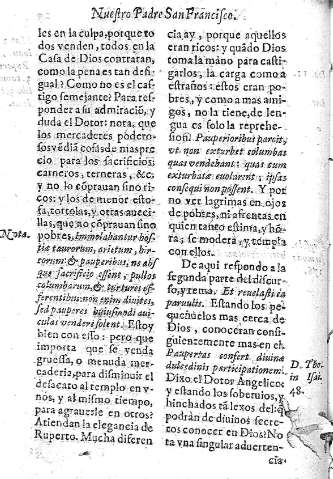 Nuestro Padre San Francisco.
les en la culpa, porque to
dos venden, todos en la
Casa de Dios contratan,
como la pena es tan des
igual? Como no es el cas
tigo semejante? Para res-
ponder a su admiració, y
duda el Dotor: nota, que
los mercaderes podero-
sos vēdiā cosas de mas pre
cio para los sacrificios:
carneros, terneras, &c;
y no lo cōprauan sino ri-
cos: y los de menor esto-
fa, tortolas, y otras aueci-
llas, que no cōprauan sino
pobres. Immolabantur hos-
tiæ taurorum, arietum, hir-
corum: & pauperibus, ne abs-
que sacrificio essent, pullos
columbarum, & turtures of-
ferentibus: non enim diuites,
sed pauperes huiusmodi aui-
culas vendere solent. Estoy
bien con esso: pero que
importa que se venda
gruessa, o menuda mer-
caderia, para disminuir el
desacato al templo en v-
nos, y al mismo tiempo,
para agrauerle en otros?
Atiendan la elegancia de
Ruperto. Mucha diferen
Nota.
cia ay, porque aquellos
eran ricos: y quādo Dios
toma la mano para casti-
garlos, la carga como a
estraños: estos eran po-
bres, y como a mas ami-
gos, no la tiene, de len-
gua es solo la reprehe-
sion. Pauperioribus parcit,
vt non exturbet columbas
quas vendebant: quas cum
exturbatæ euolarent, ipsas
consequi non possent. Y por
no ver lagrimas en ojos
de pobres, ni afrentas en
quien tanto estima, y hō-
ra, se modera, y tempta
con ellos.
De aqui respondo a la
segunda parte del discur-
so, y tema. Et reuelasti ea
paruulis. Estando los pe-
queñuelos mas cerca de
Dios, conoceran consi-
guientemente mas en el.
Paupertas confert diuinæ
dulcedinis participationem:
Dixo el Dotor Angelico:
y estando los soberuios, y
hinchados tā lexos del: q̄
podrán de diuinos secre-
tos conocer en Dios? No
ta vna singular aduerten-
cia-
D. Tho.
in Isai.
48.